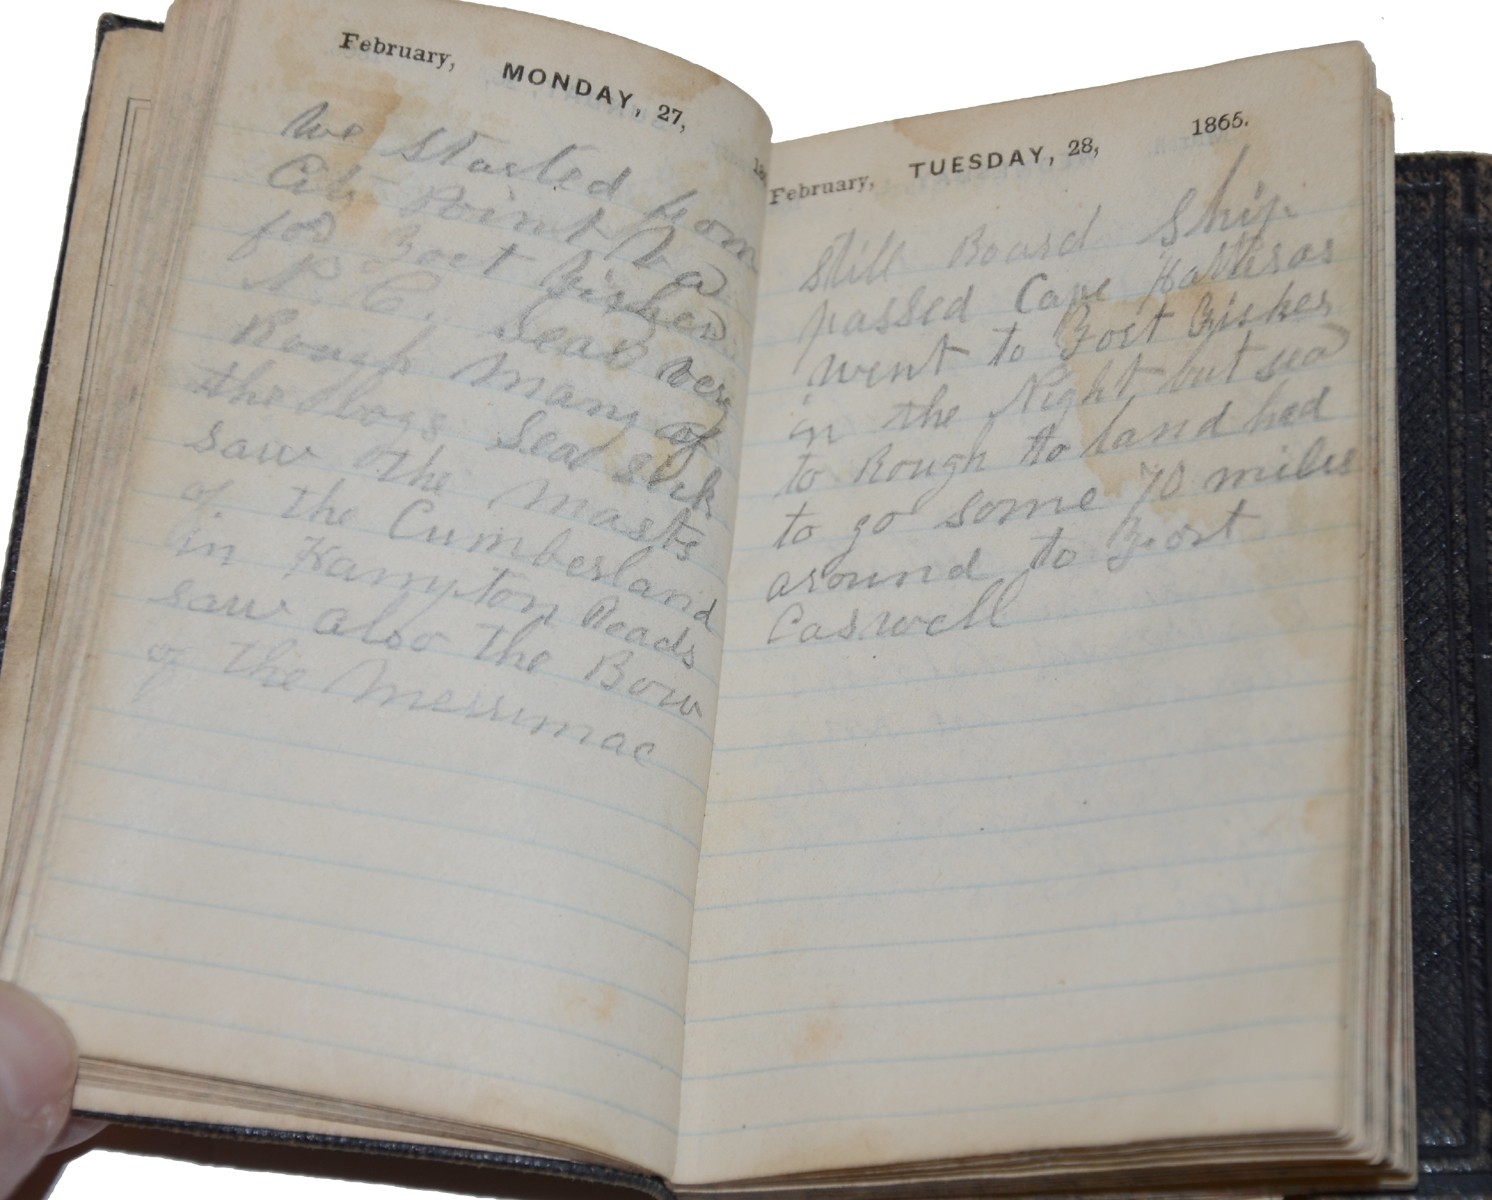 February, MONDAY, 27,
we started from
City Point Va
for Fort Fisher
N. C. Sea very
Rough many of
the boys Sea sick
saw the masts
of the Cumberland
in Hampton Roads
saw also the Bow
of the Merrimac
February, TUESDAY, 28, 1865.
still Board Ship.
passed Cape Hatteras
went to Fort Fisher
in the Night but sea
to Rough to land had
to go some 70 miles
around to Fort
Caswell